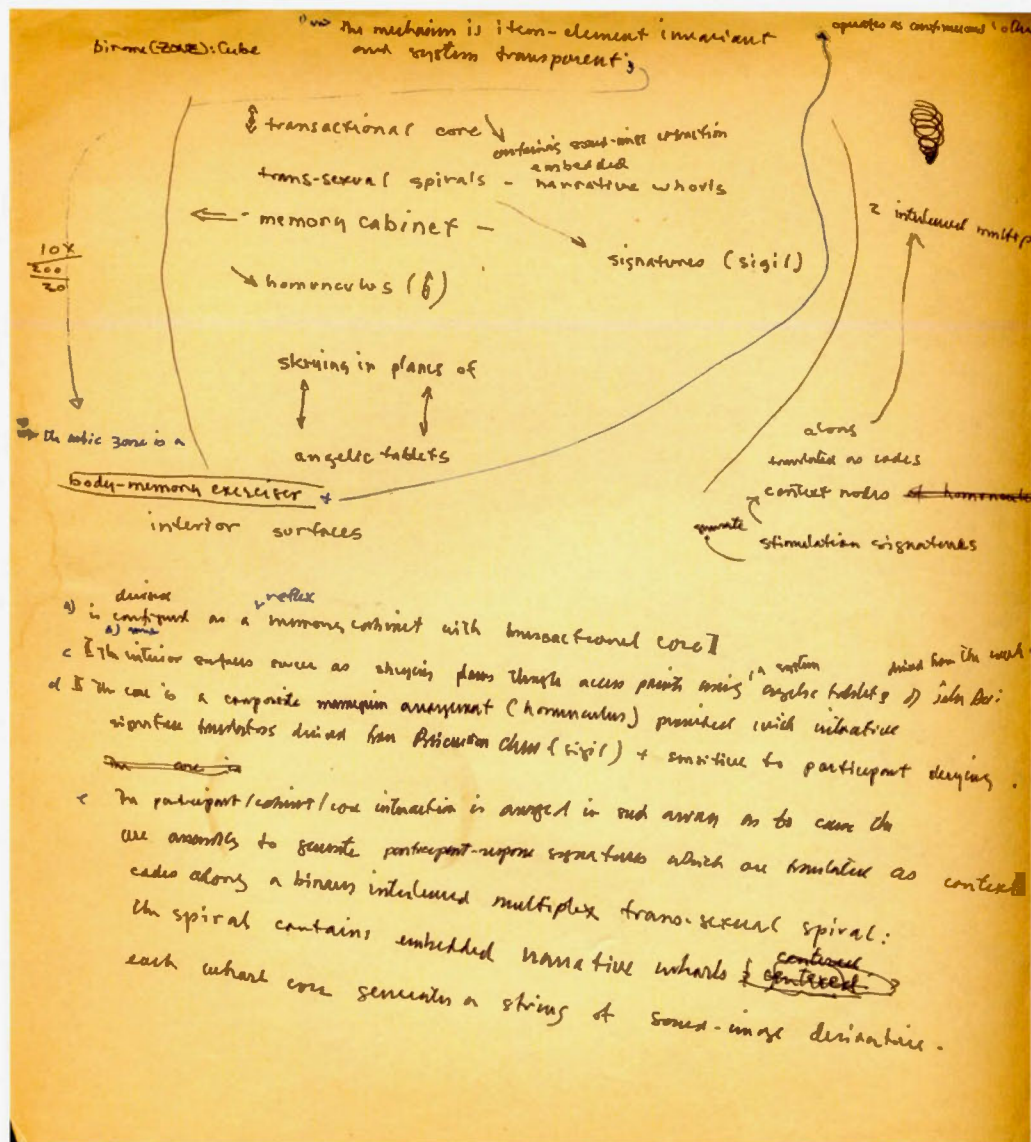 the mechanism is item-element invariant
and system transparent;
operates as continuous
binome (ZONE): Cube
transactional core
containing sound-image
embedded
trans-sexual spirals - narrative whorls
memory cabinet -
signatures (sigil)
homunculus
10x
200
20
2 interleaved multip
skrying in planes of
angelic tablets
the cubic zone is a
body-memory exerciser +
interior surfaces
along
translated as codes
context nodes of homuncul
generate
stimulation signatures
reflex
a) is configured as a memory cabinet with transactional core
a system
c The interior surfaces serve as skrying planes through access points using angelic tablets of John Dee
derived from the
d The core is a composite mannequin arrangement (homunculus) provided with interactive
signature translators derived from (sigil) + sensitive to participant skrying.
The core is
e The participant/cabinet/core interaction is arranged in such array as to cause the
core assembly to generate participant-response signatures which are translated as context
codes along a binary interleaved multiplex trans-sexual spiral:
the spiral contains embedded narrative whorls
centered
each whorl core generates a string of sound-image derivative.